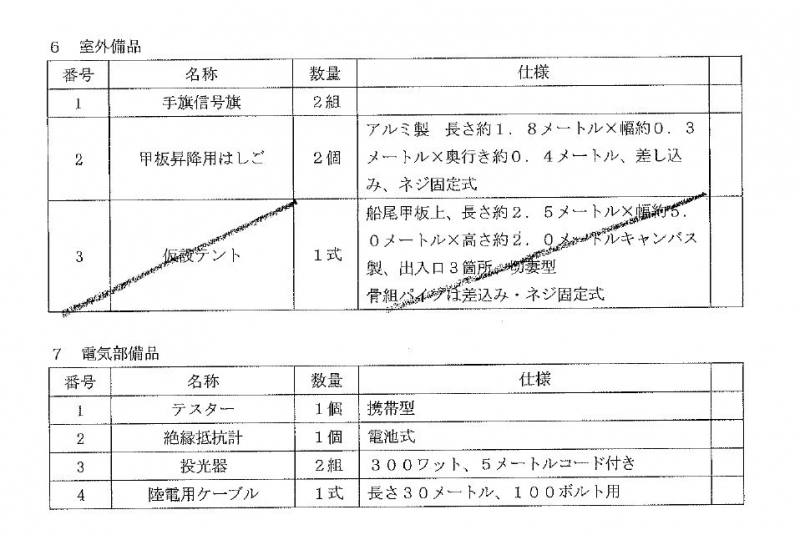 6 室外備品
番号 名称 数量 仕様
1 手旗信号旗 2組
2 甲板昇降用はしご 2個 アルミ製 長さ約1.8メートル×幅約0.3
メートル×奥行き約0.4メートル、差し込
み、ネジ固定式
3 仮設テント 1式 船尾甲板上、長さ約2.5メートル×幅約5.
0メートル×高さ約2.0メートルキャンバス
製、出入口3箇所、切妻型
骨組パイプは差込み・ネジ固定式
7 電気部備品
番号 名称 数量 仕様
1 テスター 1個 携帯型
2 絶縁抵抗計 1個 電池式
3 投光器 2組 300ワット、5メートルコード付き
4 陸電用ケーブル 1式 長さ30メートル、100ボルト用